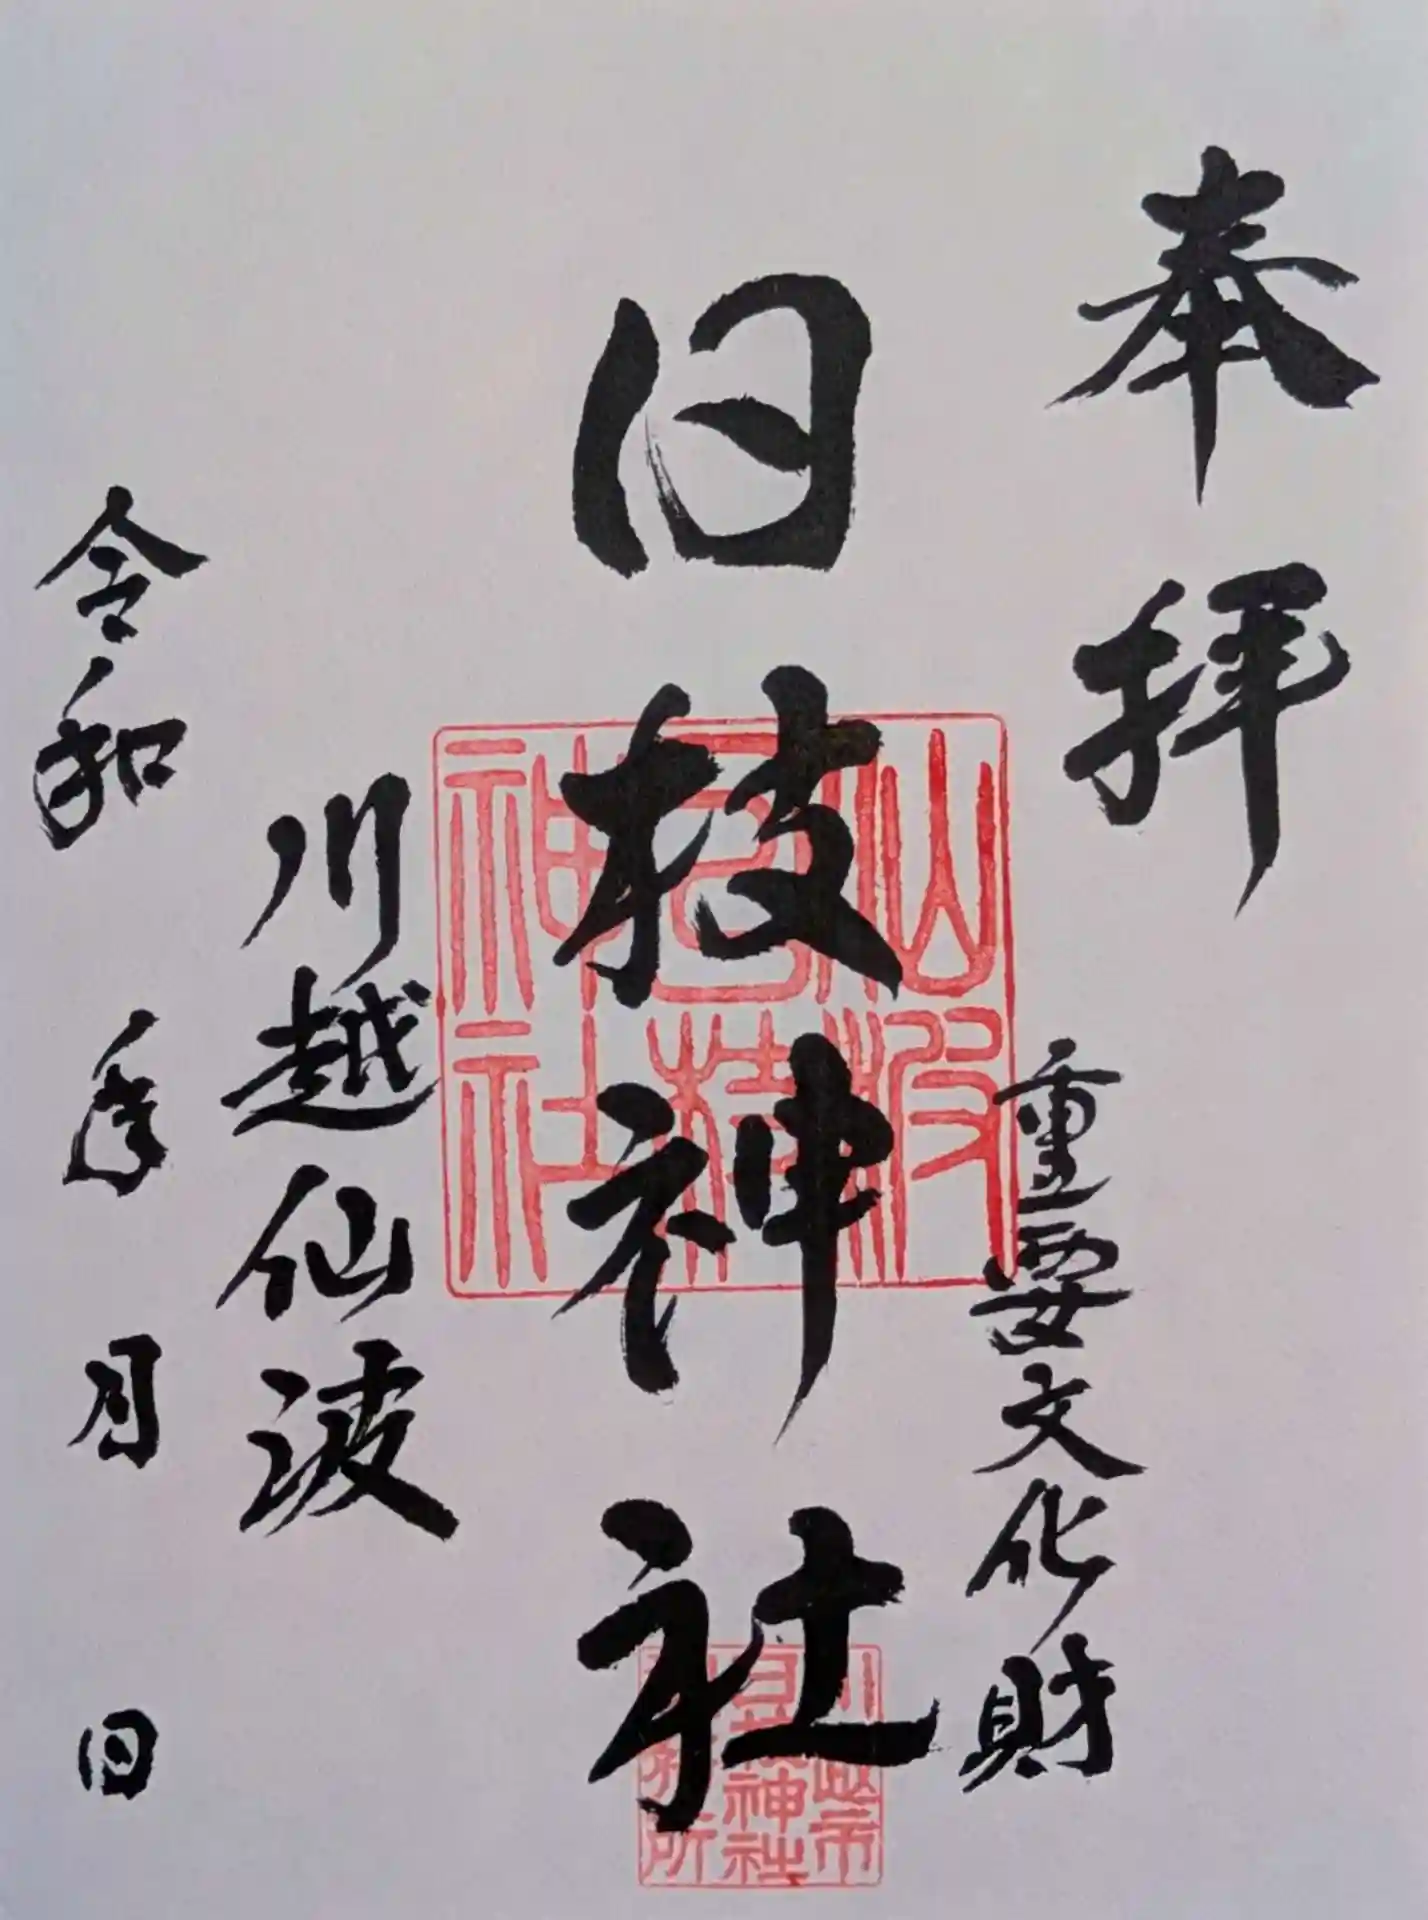 奉拝
重要文化財
日枝神社
川越仙波
令和 年 月 日
仙波
日枝
神社
日枝神社